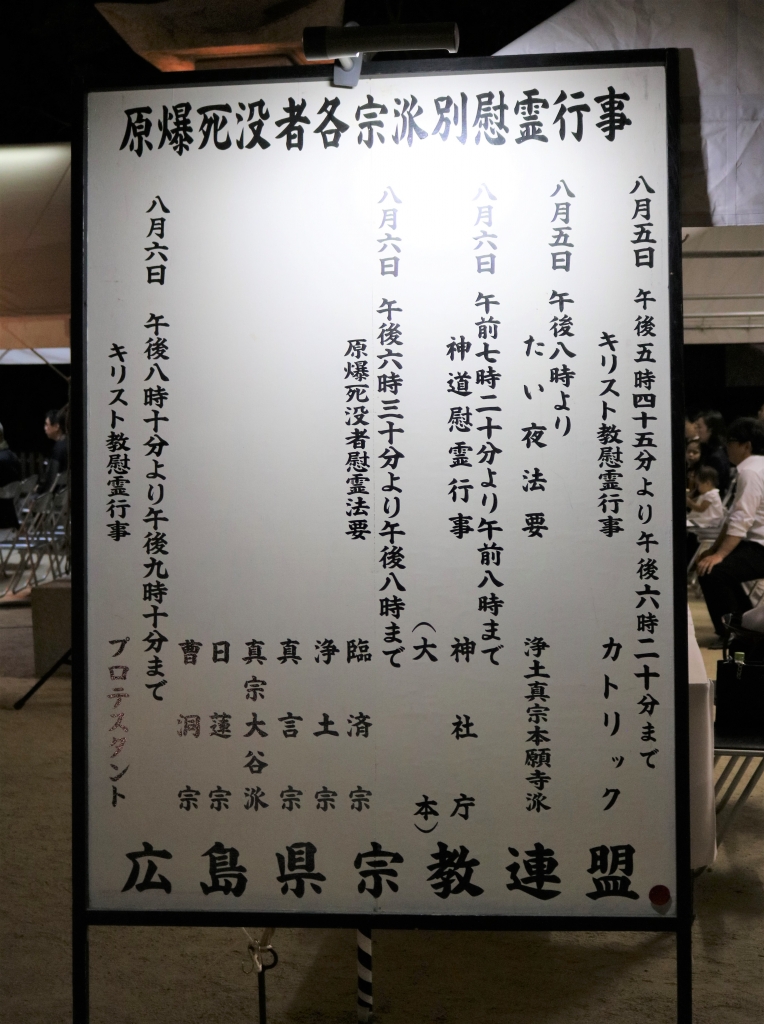 原爆死没者各宗派別慰霊行事
八月五日　午後五時四十五分より午後六時二十分まで
キリスト教慰霊行事　カトリック
八月五日　午後八時より
たい夜法要　浄土真宗本願寺派
八月六日　午前七時二十分より午前八時まで
神道慰霊行事　神社庁
（大本）
八月六日　午後六時三十分より午後八時まで
原爆死没者慰霊法要　臨済宗
浄土宗
真言宗
真宗大谷派
日蓮宗
曹洞宗
八月六日　午後八時十分より午後九時十分まで
キリスト教慰霊行事　プロテスタント
広島県宗教連盟